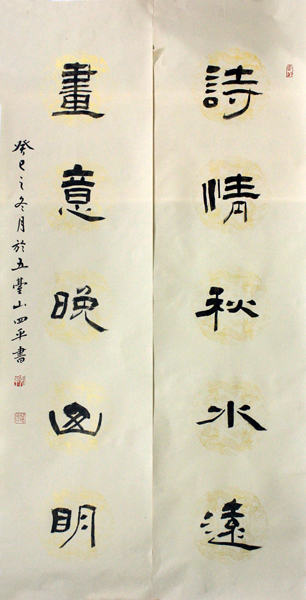 詩情秋水遠
畫意晚山明
癸巳之冬月於五臺山四平書